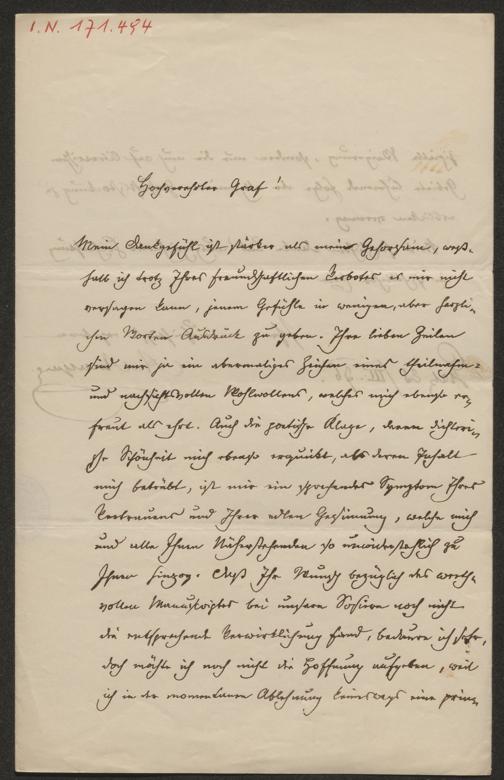 I.N. 171.484
Hochverehrter Graf!
Mein Dankgefühl ist stärker als mein Gehorsam, weß-
halb ich trotz Ihres freundschaftlichen Verbotes es mir nicht
versagen kann, jenem Gefühle in wenigen, aber herzli-
chen Worten Ausdruck zu geben. Ihre lieben Zeilen
sind mir ja ein abermaliges Zeichen eines theilnahm-
und nachsichtsvollen Wohlwollens, welches mich ebenso er-
freut als ehrt. Auch die poetische Klage, deren dichteri-
sche Schönheit mich ebenso erquickt, als deren Inhalt
mich betrübt, ist mir ein sprechendes Symptom Ihres
Vertrauens und Ihrer edlen Gesinnung, welche mich
und alle Ihnen Näherstehenden so unwiderstehlich zu
Ihnen hinzog. Daß Ihr Wunsch bezüglich des werth-
vollen Manuscriptes bei unserer noch nicht
die entsprechende Verwirklichung fand, bedaure ich sehr,
doch möchte ich noch nicht die Hoffnung aufgeben, weil
ich in der momentanen Ablehnung keineswegs eine prin-